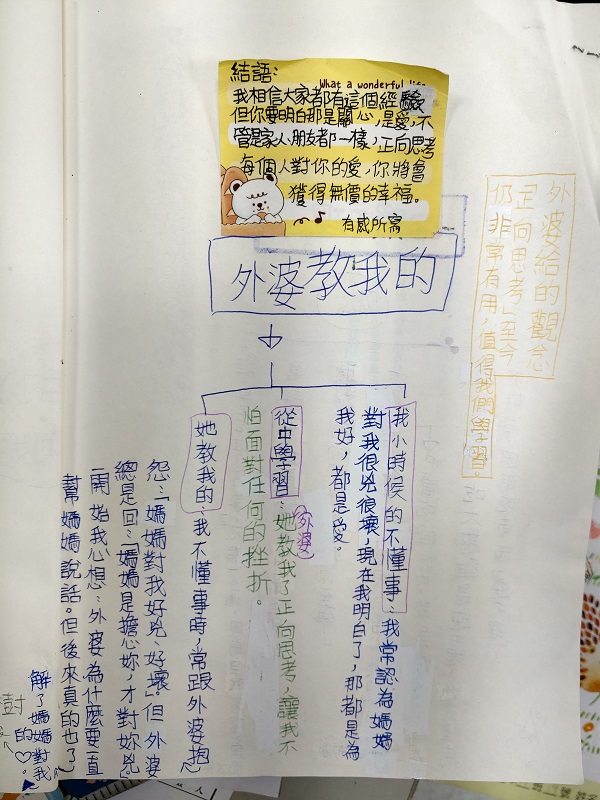 結語:
What a wonderful life
我相信大家都有這個經驗
但你要明白那是關心,是愛,不
管是家人朋友都一樣,正向思考
每個人對你的愛,你將會
獲得無價的幸福。
有感所寫
外婆教我的
外婆給的觀念
「正向思考」至今
仍非常有用,值得我們學習。
我小時候的不懂事:我常認為媽媽
對我很兇很壞,現在我明白了,那都是為
我好,都是愛。
從中學習:她教我了正向思考,讓我不
外婆
怕面對任何的挫折。
她教我的:我不懂事時,常跟外婆抱
怨:「媽媽對我好兇、好壞。」但外婆
總是回:「媽媽是擔心妳,才對妳兇」
一開始我心想:外婆為什麼要一直
幫媽媽說話。但後來真的也了
解了媽媽對我
的♡。